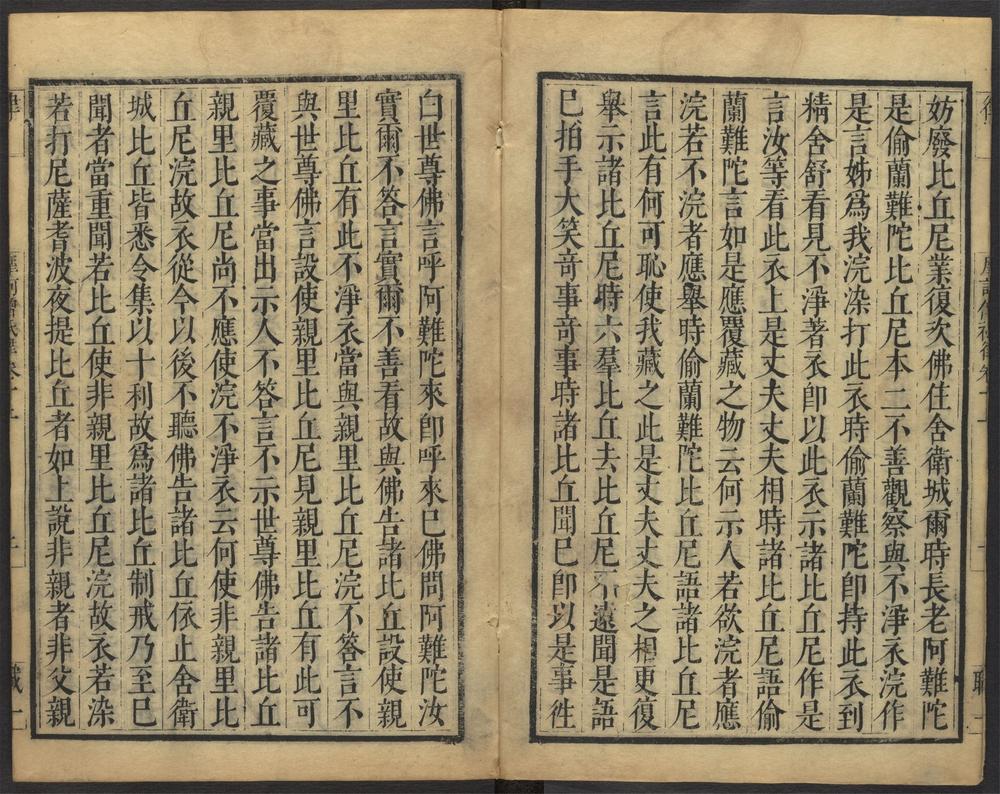 妨廢比丘尼業復次佛住舍衛城爾時長老阿難陀
是偷蘭難陀比丘尼本二不善觀察與不淨衣浣作
是言姊爲我浣染打此衣時偷蘭難陀即持此衣到
精舍舒看見不淨著衣即以此衣示諸比丘尼作是
言汝等看此衣上是丈夫丈夫相時諸比丘尼語偷
蘭難陀言如是應覆藏之物云何示人若欲浣者應
浣若不浣者應舉時偷蘭難陀比丘尼語諸比丘尼
言此有何可恥使我藏之此是丈夫丈夫之相更復
舉示諸比丘尼時六羣比丘去比丘尼不遠聞是語
已拍手大笑奇事奇事時諸比丘聞已即以是事徃
白世尊佛言呼阿難陀來即呼來已佛問阿難陀汝
實爾不答言實爾不善看故與佛告諸比丘設使親
里比丘有此不淨衣當與親里比丘尼浣不答言不
與世尊佛言設使親里比丘尼見親里比丘有此可
覆藏之事當出示人不答言不示世尊佛告諸比丘
親里比丘尼尚不應使浣不淨衣云何使非親里比
丘尼浣故衣從今以後不聽佛告諸比丘依止舍衛
城比丘皆悉令集以十利故爲諸比丘制戒乃至已
聞者當重聞若比丘使非親里比丘尼浣故衣若染
若打尼薩耆波夜提比丘者如上說非親者非父親